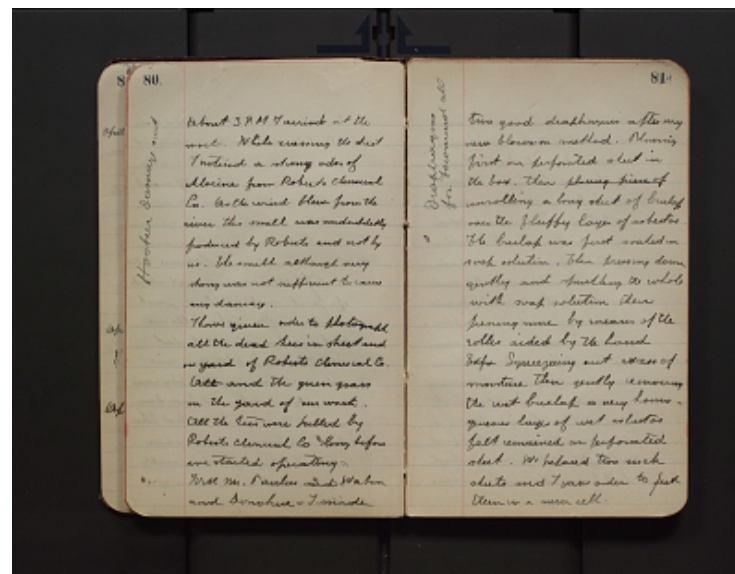 80
About 3 P.M. I arrived at the
work. While crossing the street
I noticed a strong odor of
Chlorine from Roberts Chemical
Co. As the wind blew from the
river this smell was undoubtedly
produced by Roberts and not by
us. The smell although very
strong was not sufficient to cause
any damage.
I have given order to photograph
all the dead trees in street and
in yard of Roberts Chemical Co.
and the green grass
in the yard of our works.
All the trees were killed by
Roberts Chemical Co long before
we started operating.
With Mr.
and Donohue I made
81
Diaphragms
two good diaphragms after my
new blown on method. Blowing
first on perforated sheet in
the box. Then
unrolling a long sheet of burlap
over the fluffy layer of asbestos
The burlap was first soaked in
soap solution. Then pressing down
gently and the whole
with soap solution then
pressing more by means of the
roller aided by the hand
Squeezing out excess of
moisture then gently removing
the wet burlap a very homo-
geneous layer of wet asbestos
felt remained on perforated
sheet. We two such
sheets and I gave order to put
them in a new cell.